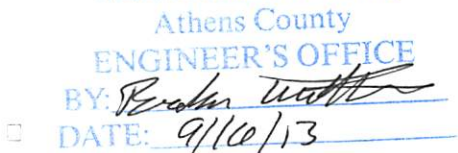 Athens County
ENGINEER'S OFFICE
BY:
DATE: 9/16/13